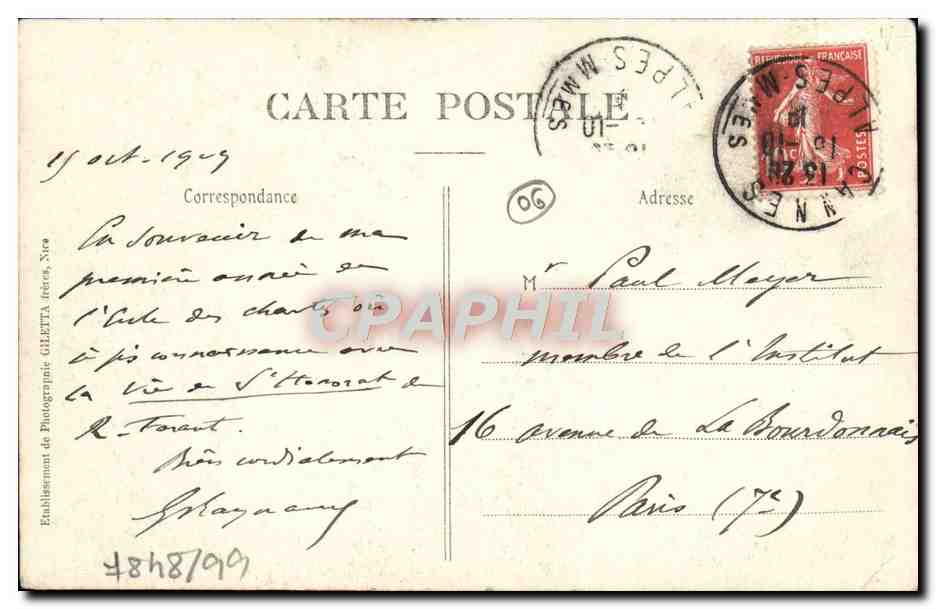 CARTE POSTALE
15 oct. 1909
Correspondance
En souvenir de ma
première année de
l'École des chartes où
je fis connaissance avec
la Vie de St Honorat de
R. Feraut.
Bien cordialement
Adresse
Mr Paul Meyer
membre de l'Institut
16 avenue de La Bourdonnais
Paris (7e)
06
Etablissement de Photographie GILETTA frères, NICE
7848/99
REPUBLIQUE FRANÇAISE
POSTES
10c
CANNES
ALPES-MMES
ALPES-MMES
CPAPHIL